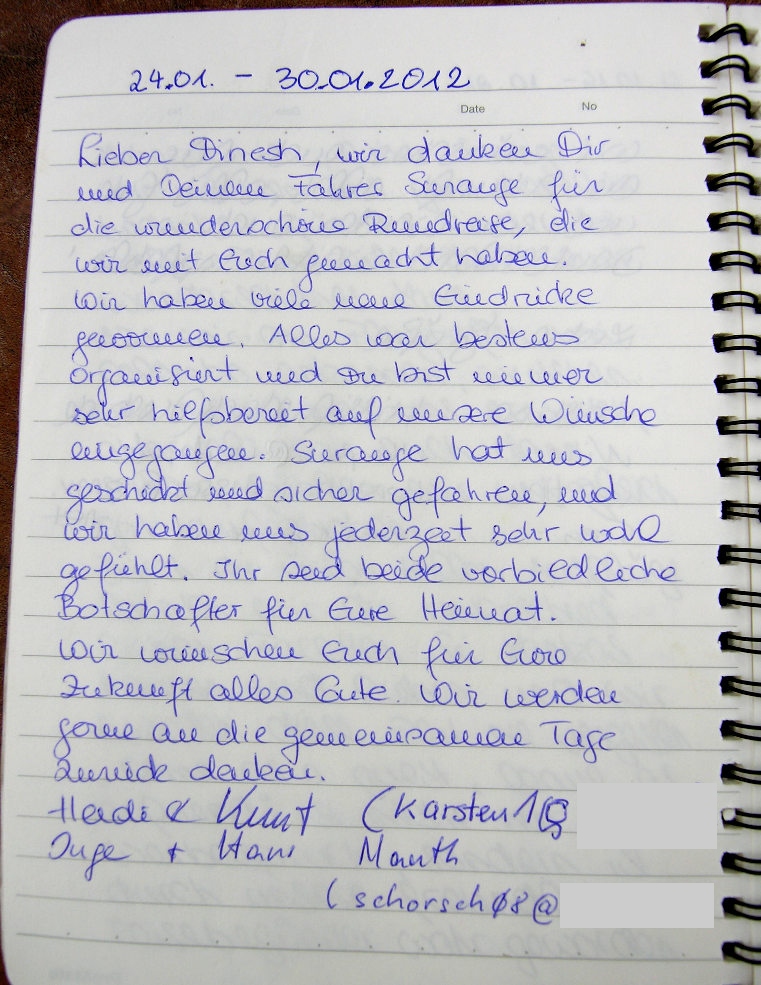 24.01. - 30.01.2012
Date No
Lieber Dinesh, wir danken Dir
und Deinem Fahrer Surange für
die wunderschöne Rundreise, die
wir mit Euch gemacht haben.
Wir haben viele neue Eindrücke
gewonnen. Alles war bestens
organisiert und Du bist immer
sehr hilfsbereit auf unsere Wünsche
eingegangen. Surange hat uns
geschickt und sicher gefahren, und
wir haben uns jederzeit sehr wohl
gefühlt. Ihr seid beide vorbiedliche
Botschafter für Eure Heimat.
Wir wünschen Euch für Eure
Zukunft alles Gute. Wir werden
gerne an die gemeinsamen Tage
zurück denken.
Heidi & Kurt (Karsten1@
Inge + Hans Manth
(schorsch08@